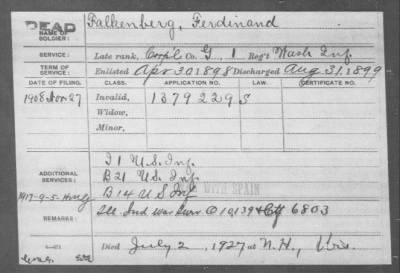 DEAD
NAME OF SOLDIER: Falkenberg, Ferdinand
SERVICE: Late rank, Corpl Co. G, 1 Reg't Wash Inf.
TERM OF SERVICE: Enlisted Apr 30 1898 Discharged Aug 31, 1899
DATE OF FILING. CLASS. APPLICATION NO. LAW. CERTIFICATE NO.
1908 Nov 27 Invalid, 1379229 S
Widow,
Minor,
I 1 U.S. Inf.
ADDITIONAL SERVICES: B 21 U.S. Inf.
1917-9-5- B 14 U S Inf
WITH SPAIN
REMARKS: Ind war Surv 6803
Died July 2, 1927 at N.H.,